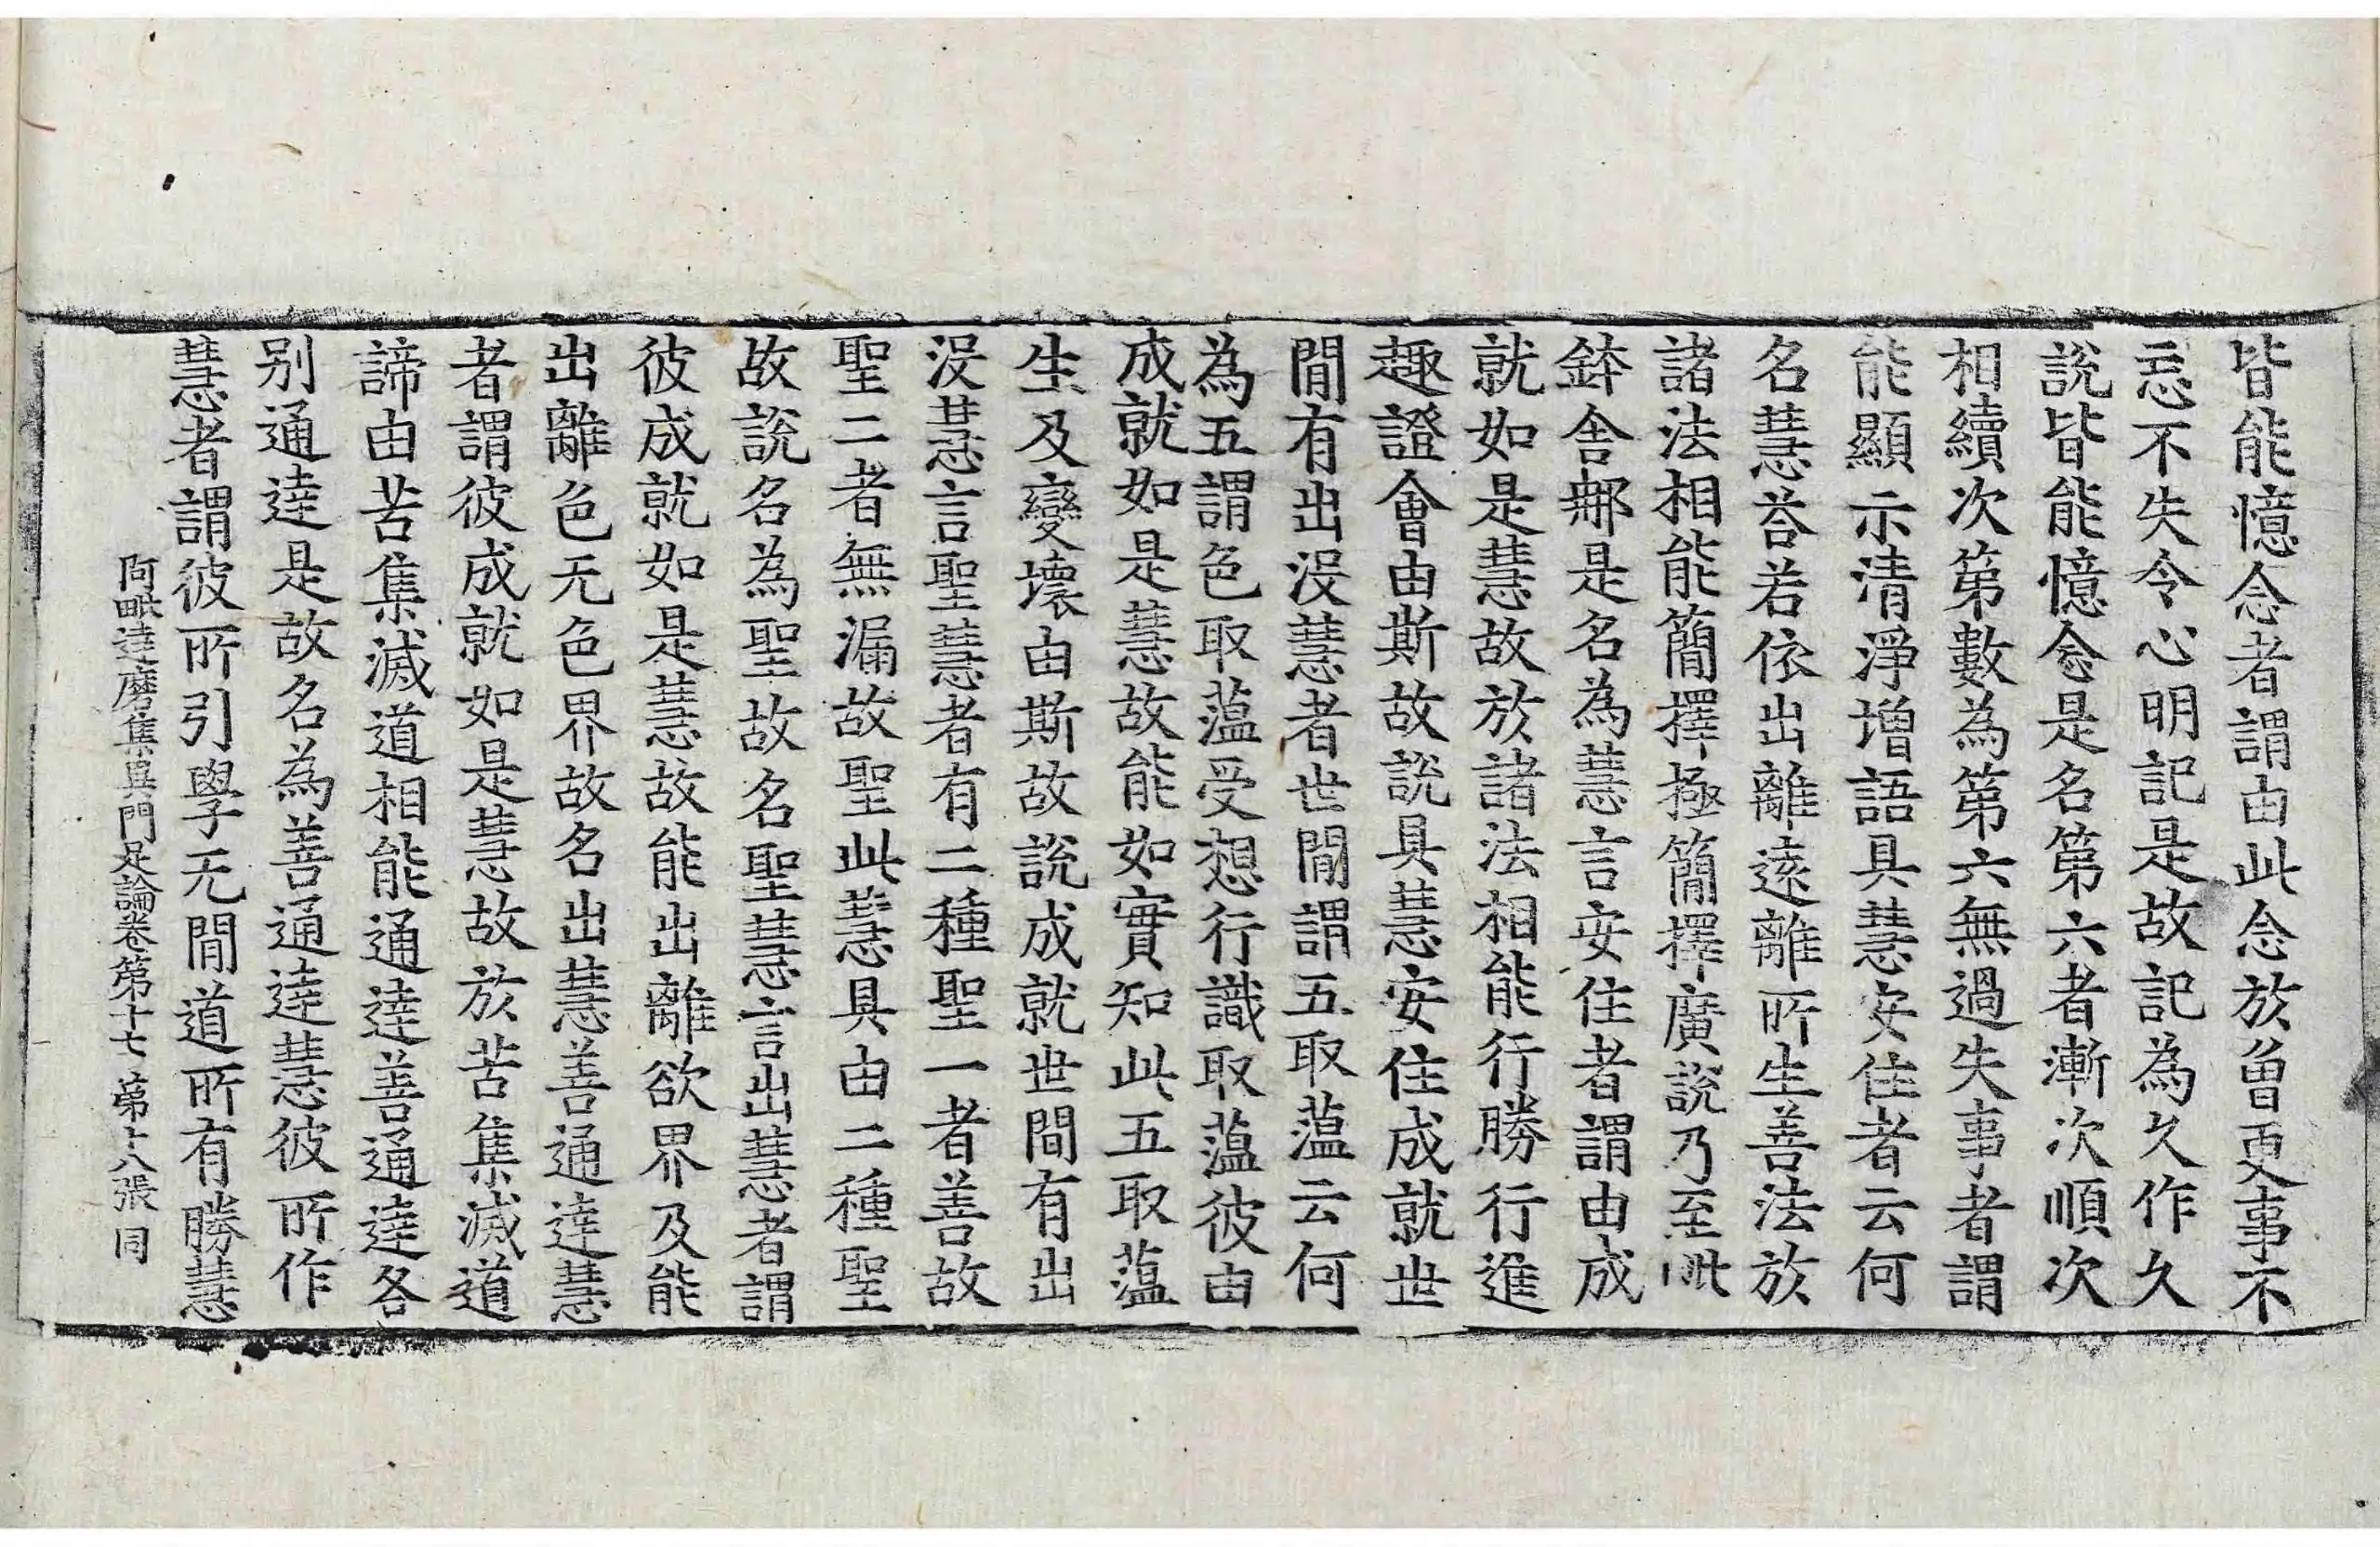 皆能憶念者謂由此念於曾更事不
忘不失令心明記是故記為久作久
說皆能憶念是名第六者漸次順次
相續次第數為第六無過失事者謂
能顯示清淨增語具慧安住者云何
名慧荅若依出離遠離所生善法於
諸法相能簡擇極簡擇廣說乃至毗
鉢舍那是名為慧言安住者謂由成
就如是慧故於諸法相能行勝行進
趣證會由斯故說具慧安住成就世
閒有出沒慧者世閒謂五取薀云何
為五謂色取薀受想行識取薀彼由
成就如是慧故能如實知此五取薀
生及變壞由斯故說成就世間有出
沒慧言聖慧者有二種聖一者善故
聖二者無漏故聖此慧具由二種聖
故說名為聖故名聖慧言出慧者謂
彼成就如是慧故能出離欲界及能
出離色无色界故名出慧善通達慧
者謂彼成就如是慧故於苦集滅道
諦由苦集滅道相能通達善通達各
别通達是故名為善通達慧彼所作
慧者謂彼所引學无閒道所有勝慧
阿毗達磨集異門足論卷第十七 第十八張 同